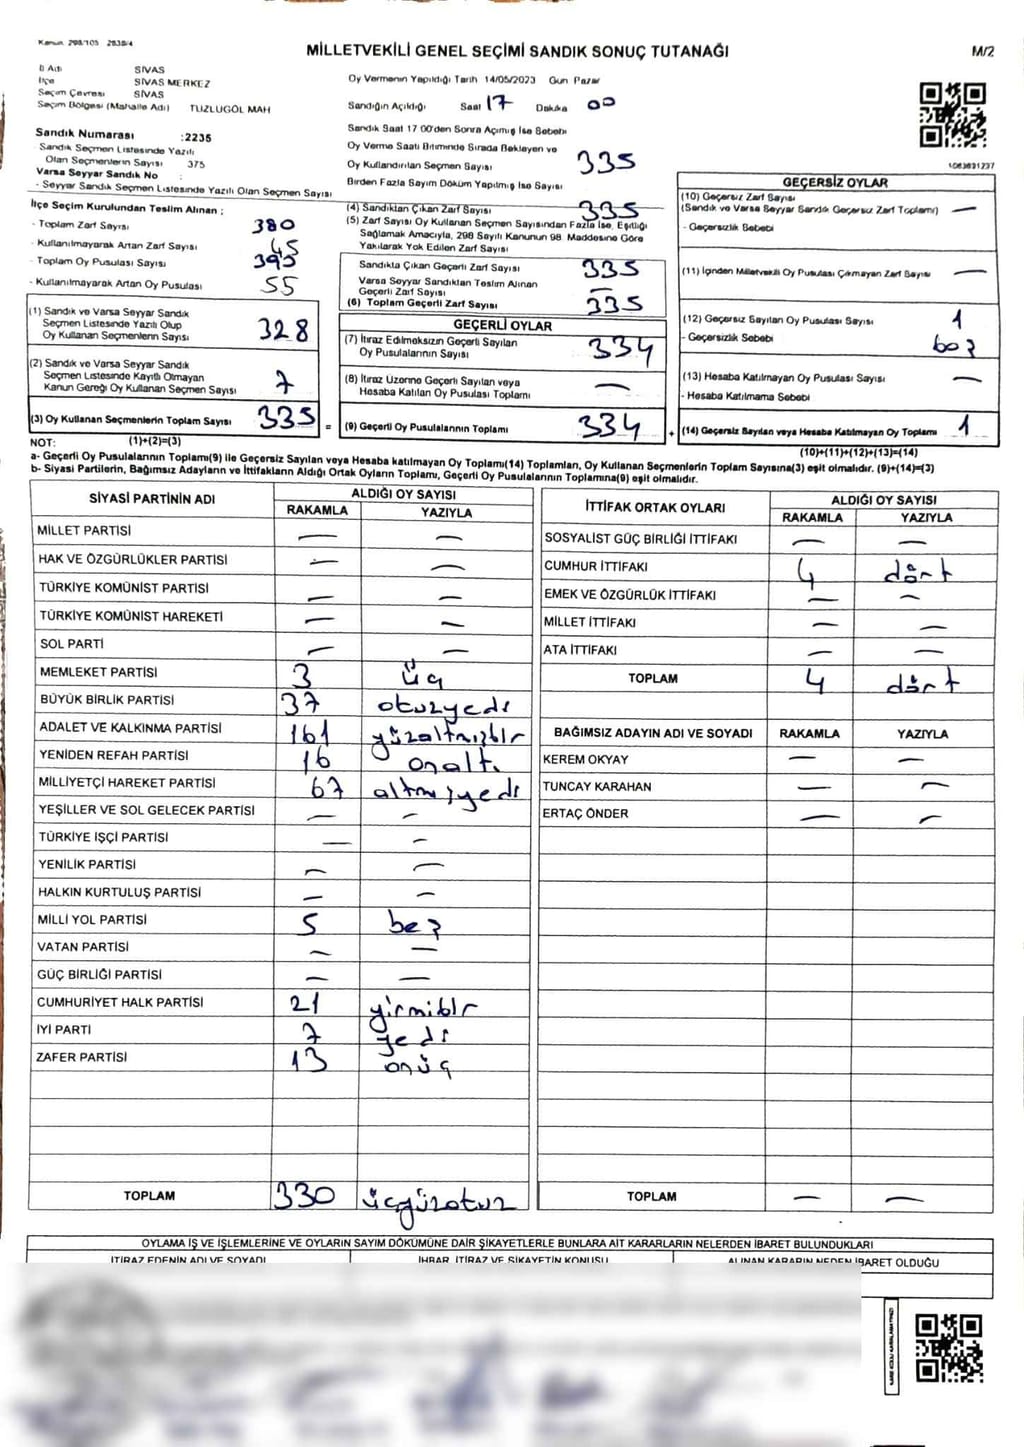 Kanun 298/105 2839/4
MİLLETVEKİLİ GENEL SEÇİMİ SANDIK SONUÇ TUTANAĞI
M/2
İl Adı SİVAS
İlçe SİVAS MERKEZ
Seçim Çevresi SİVAS
Seçim Bölgesi (Mahalle Adı) TUZLUGÖL MAH
Sandık Numarası :2235
- Sandık Seçmen Listesinde Yazılı
Olan Seçmenlerin Sayısı 375
Varsa Seyyar Sandık No :
- Seyyar Sandık Seçmen Listesinde Yazılı Olan Seçmen Sayısı
Oy Vermenin Yapıldığı Tarih 14/05/2023 Gün Pazar
Sandığın Açıldığı Saat 17 Dakika 00
Sandık Saat 17 00'den Sonra Açılmış İse Sebebi
Oy Verme Saati Bitiminde Sırada Bekleyen ve
Oy Kullandırılan Seçmen Sayısı 335
Birden Fazla Sayım Döküm Yapılmış İse Sayısı
1063631237
İlçe Seçim Kurulundan Teslim Alınan :
- Toplam Zarf Sayısı 380
- Kullanılmayarak Artan Zarf Sayısı 45
- Toplam Oy Pusulası Sayısı 395
- Kullanılmayarak Artan Oy Pusulası 55
(1) Sandık ve Varsa Seyyar Sandık
Seçmen Listesinde Yazılı Olup
Oy Kullanan Seçmenlerin Sayısı 328
(2) Sandık ve Varsa Seyyar Sandık
Seçmen Listesinde Kayıtlı Olmayan
Kanun Gereği Oy Kullanan Seçmen Sayısı 7
(3) Oy Kullanan Seçmenlerin Toplam Sayısı 335 =
(4) Sandıktan Çıkan Zarf Sayısı 335
(5) Zarf Sayısı Oy Kullanan Seçmen Sayısından Fazla İse, Eşitliği
Sağlamak Amacıyla, 298 Sayılı Kanunun 98 Maddesine Göre
Yakılarak Yok Edilen Zarf Sayısı
Sandıkta Çıkan Geçerli Zarf Sayısı 335
Varsa Seyyar Sandıktan Teslim Alınan
Geçerli Zarf Sayısı —
(6) Toplam Geçerli Zarf Sayısı 335
GEÇERLİ OYLAR
(7) İtiraz Edilmeksizin Geçerli Sayılan
Oy Pusulalarının Sayısı 334
(8) İtiraz Üzerine Geçerli Sayılan veya
Hesaba Katılan Oy Pusulası Toplamı —
(9) Geçerli Oy Pusulalarının Toplamı 334 +
GEÇERSİZ OYLAR
(10) Geçersiz Zarf Sayısı
(Sandık ve Varsa Seyyar Sandık Geçersiz Zarf Toplamı) —
- Geçersizlik Sebebi
(11) İçinden Milletvekili Oy Pusulası Çıkmayan Zarf Sayısı —
(12) Geçersiz Sayılan Oy Pusulası Sayısı 1
- Geçersizlik Sebebi boş
(13) Hesaba Katılmayan Oy Pusulası Sayısı —
- Hesaba Katılmama Sebebi
(14) Geçersiz Sayılan veya Hesaba Katılmayan Oy Toplamı 1
NOT: (1)+(2)=(3)
(10)+(11)+(12)+(13)=(14)
a- Geçerli Oy Pusulalarının Toplamı(9) ile Geçersiz Sayılan veya Hesaba katılmayan Oy Toplamı(14) Toplamları, Oy Kullanan Seçmenlerin Toplam Sayısına(3) eşit olmalıdır. (9)+(14)=(3)
b- Siyasi Partilerin, Bağımsız Adayların ve İttifakların Aldığı Ortak Oyların Toplamı, Geçerli Oy Pusulalarının Toplamına(9) eşit olmalıdır.
SİYASİ PARTİNİN ADI ALDIĞI OY SAYISI
RAKAMLA YAZIYLA
MİLLET PARTİSİ — —
HAK VE ÖZGÜRLÜKLER PARTİSİ — —
TÜRKİYE KOMÜNİST PARTİSİ — —
TÜRKİYE KOMÜNİST HAREKETİ — —
SOL PARTİ — —
MEMLEKET PARTİSİ 3 üç
BÜYÜK BİRLİK PARTİSİ 37 otuzyedi
ADALET VE KALKINMA PARTİSİ 161 yüzaltmışbir
YENİDEN REFAH PARTİSİ 16 onaltı
MİLLİYETÇİ HAREKET PARTİSİ 67 altmışyedi
YEŞİLLER VE SOL GELECEK PARTİSİ — —
TÜRKİYE İŞÇİ PARTİSİ — —
YENİLİK PARTİSİ — —
HALKIN KURTULUŞ PARTİSİ — —
MİLLİ YOL PARTİSİ 5 beş
VATAN PARTİSİ — —
GÜÇ BİRLİĞİ PARTİSİ — —
CUMHURİYET HALK PARTİSİ 21 yirmibir
İYİ PARTİ 7 yedi
ZAFER PARTİSİ 13 onüç
TOPLAM 330 üçyüzotuz
İTTİFAK ORTAK OYLARI ALDIĞI OY SAYISI
RAKAMLA YAZIYLA
SOSYALİST GÜÇ BİRLİĞİ İTTİFAKI — —
CUMHUR İTTİFAKI 4 dört
EMEK VE ÖZGÜRLÜK İTTİFAKI — —
MİLLET İTTİFAKI — —
ATA İTTİFAKI — —
TOPLAM 4 dört
BAĞIMSIZ ADAYIN ADI VE SOYADI RAKAMLA YAZIYLA
KEREM OKYAY — —
TUNCAY KARAHAN — —
ERTAÇ ÖNDER — —
TOPLAM — —
OYLAMA İŞ VE İŞLEMLERİNE VE OYLARIN SAYIM DÖKÜMÜNE DAİR ŞİKAYETLERLE BUNLARA AİT KARARLARIN NELERDEN İBARET BULUNDUKLARI
İTİRAZ EDENİN ADI VE SOYADI İHBAR, İTİRAZ VE ŞİKAYETİN KONUSU ALINAN KARARIN NEDEN İBARET OLDUĞU